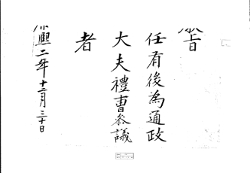 敎旨
任有後為通政
大夫禮曺參議
者
康熙二年十二月三十日